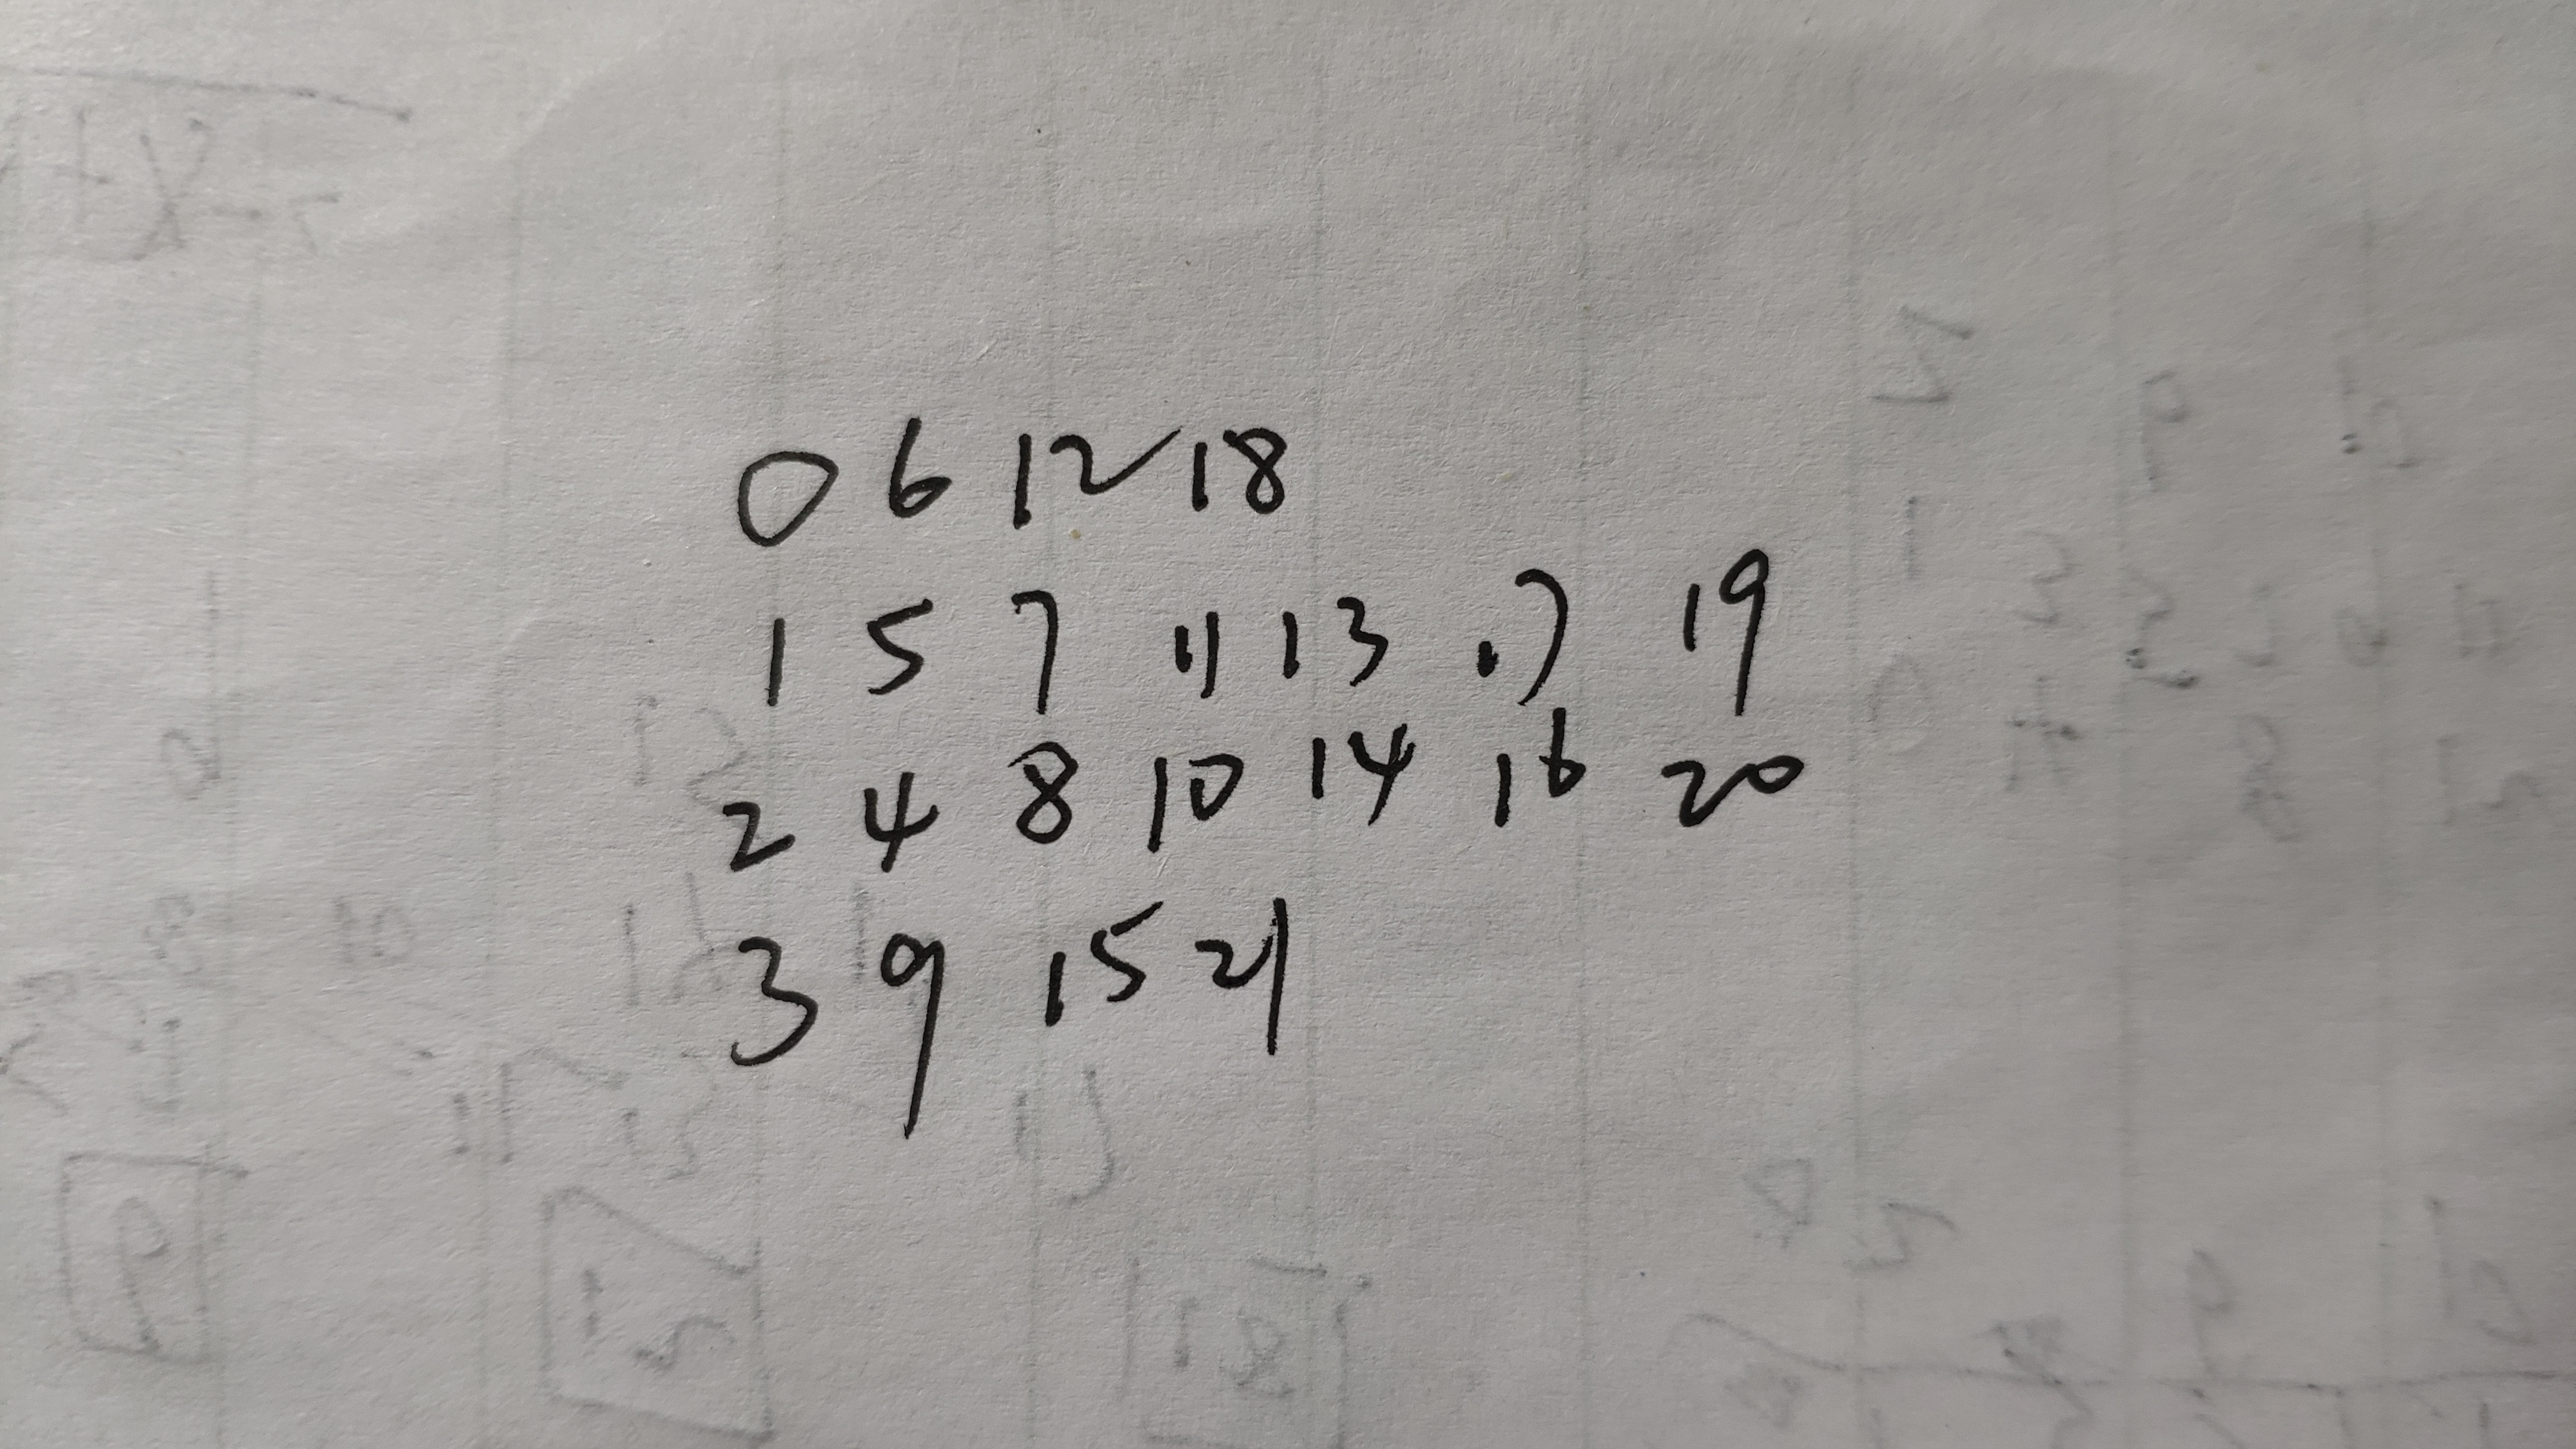 0 6 12 18
1 5 7 11 13 17 19
2 4 8 10 14 16 20
3 9 15 21